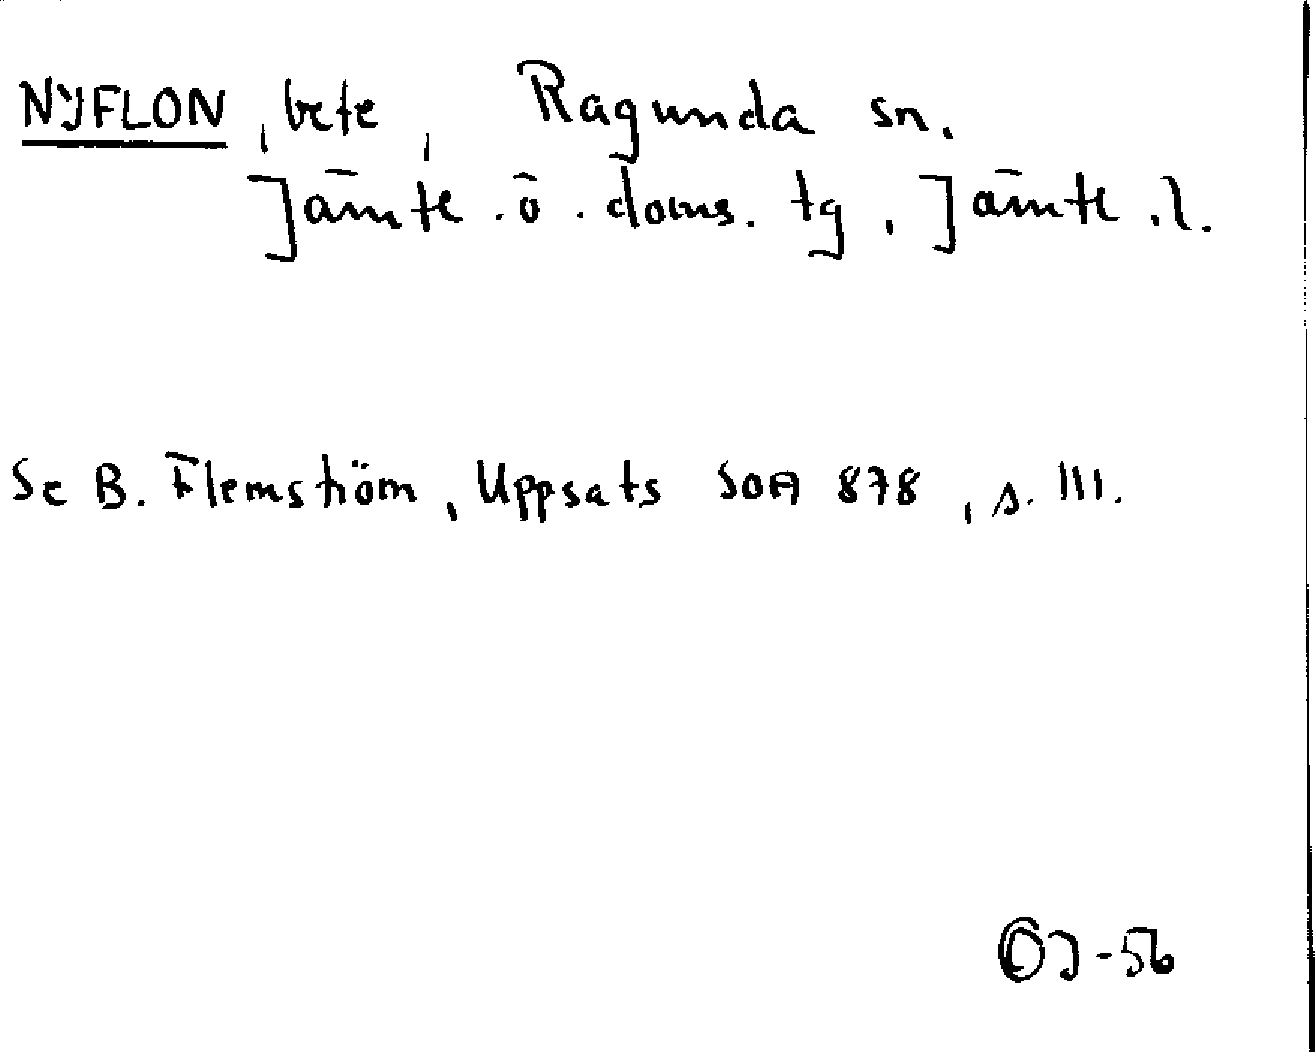 NYFLON, bete, Ragunda sn.
Jämtl. ö. doms. tg, Jämtl. l.
Se B. Flemström, Uppsats SOA 878, s. 111.
OJ-56